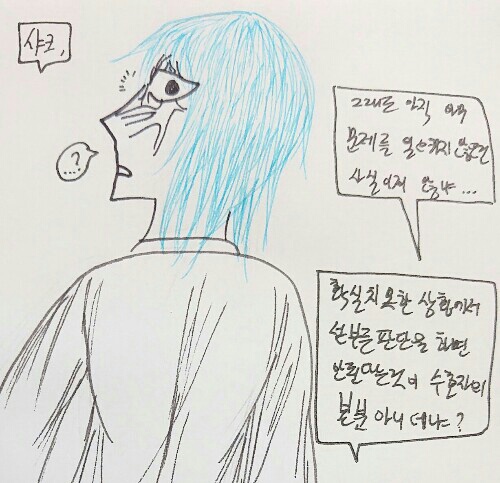 샤크,
...?
그래도 아직 아무
문제를 일으키지 않았던
사실이지 않냐...
확실치 못한 상황에서
섣부른 판단을 하면
안된다는것이 수호자의
본분 아니 더냐?